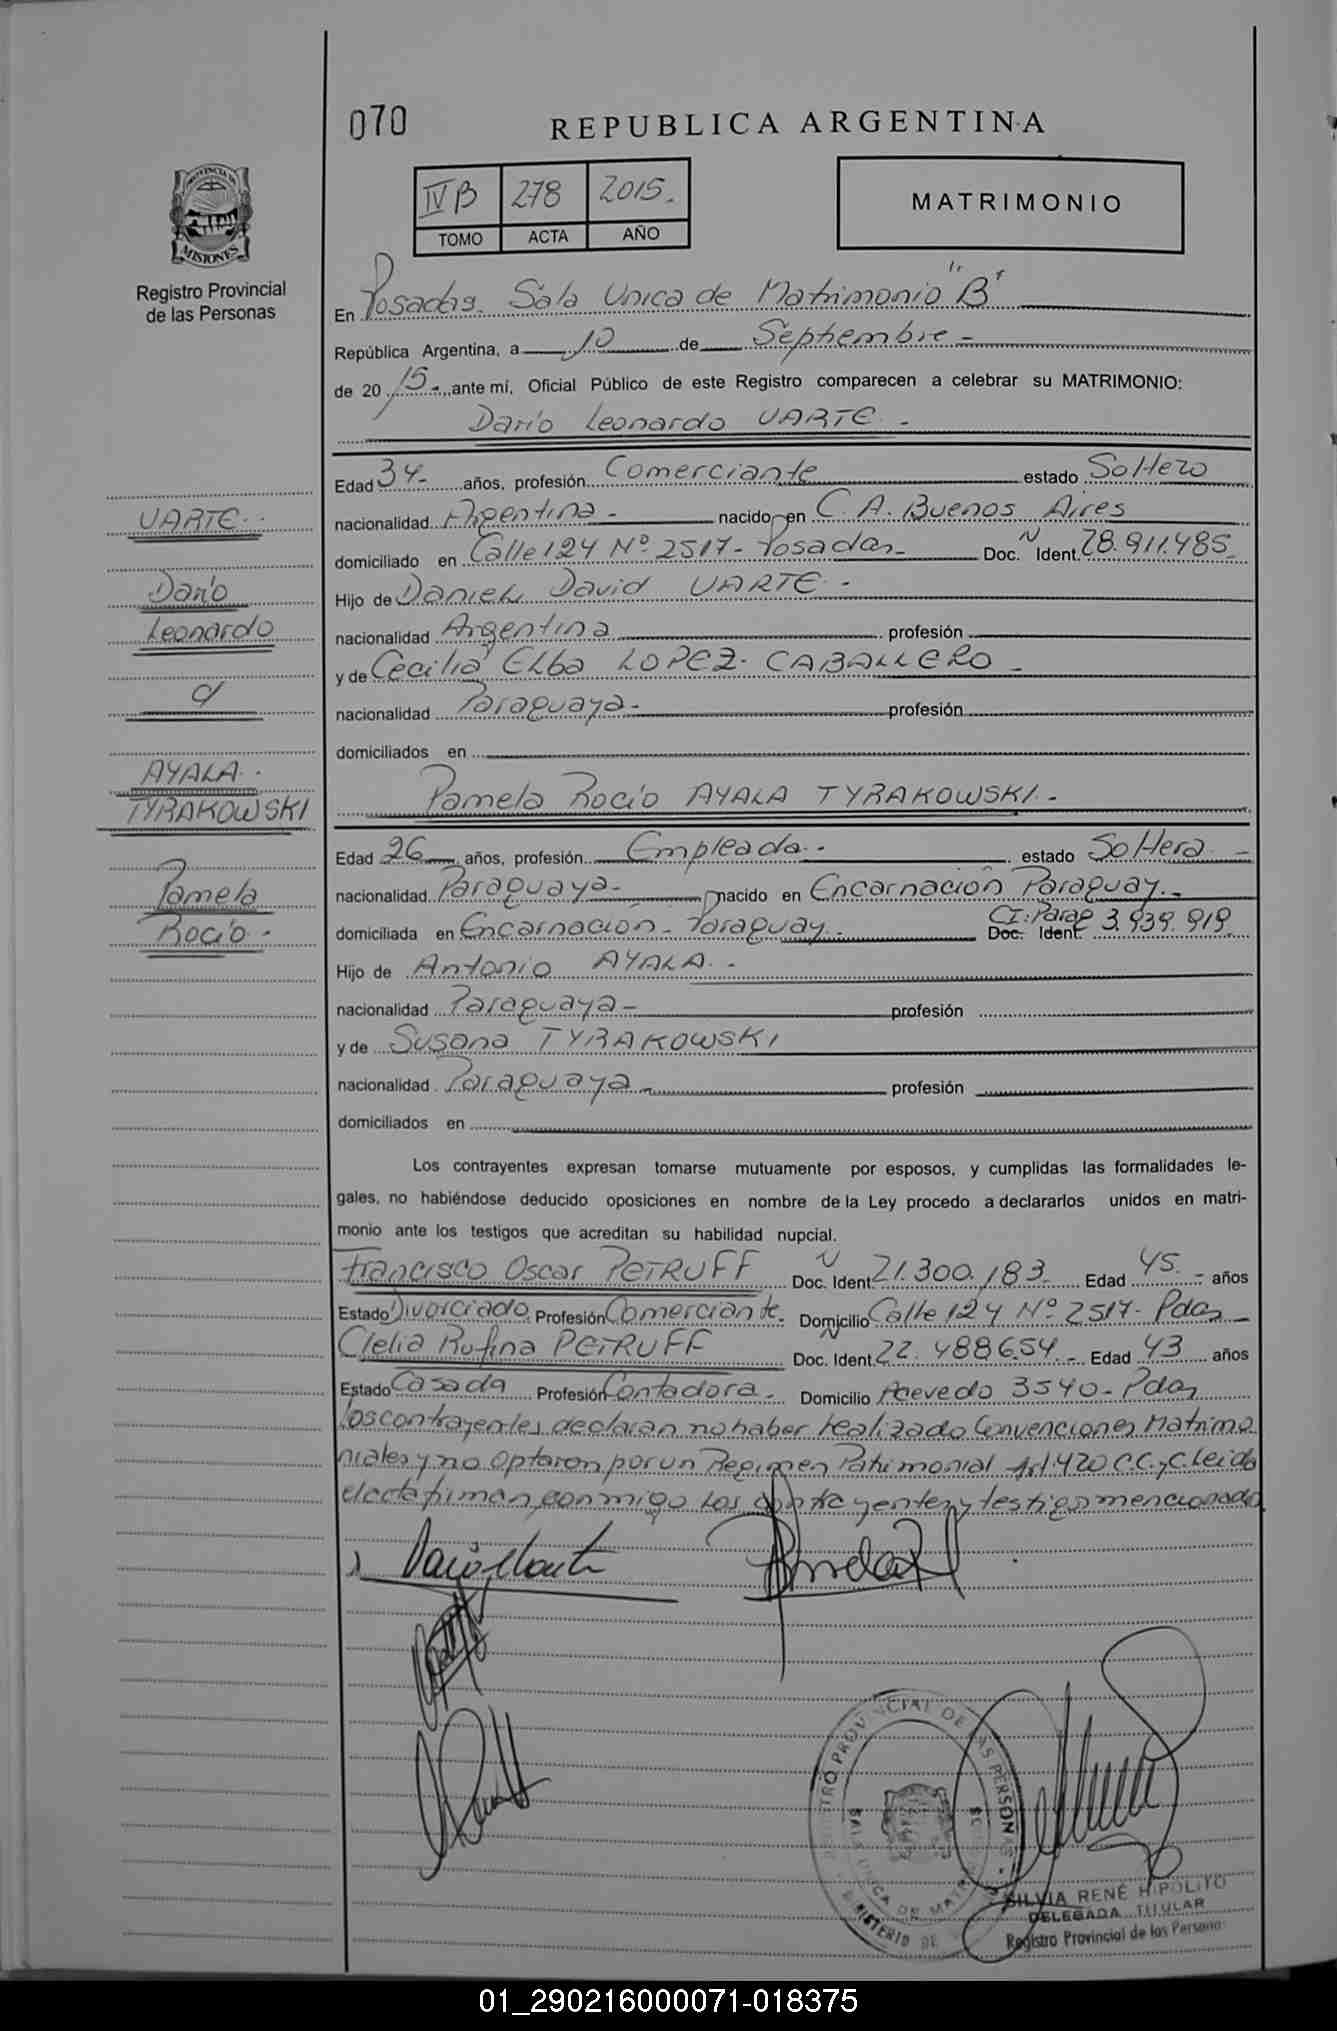 070
REPUBLICA ARGENTINA
PROVINCIA DE
MISIONES
Registro Provincial
de las Personas
IV B 278 2015.
TOMO ACTA AÑO
MATRIMONIO
En Posadas Sala Unica de Matrimonio "B"
República Argentina, a 10 de Septiembre -
de 20 15 - ante mí, Oficial Público de este Registro comparecen a celebrar su MATRIMONIO:
Darío Leonardo UARTE -
Edad 34- años, profesión Comerciante estado Soltero
nacionalidad Argentina - nacido en C. A. Buenos Aires
domiciliado en Calle 124 Nº 2517- Posadas- Doc. N Ident. 28.911.485
Hijo de Daniel David UARTE -
nacionalidad Argentina profesión
y de Cecilia Elba LOPEZ CABALLERO -
nacionalidad Paraguaya- profesión
domiciliados en
Pamela Rocío AYALA TYRAKOWSKI -
Edad 26 años, profesión Empleada - estado Soltera -
nacionalidad Paraguaya- nacido en Encarnación Paraguay -
domiciliada en Encarnación - Paraguay - CI: Parag Doc. Ident. 3.939.919
Hijo de Antonio AYALA -
nacionalidad Paraguaya- profesión
y de Susana TYRAKOWSKI
nacionalidad Paraguaya- profesión
domiciliados en
UARTE
Darío
Leonardo
c/
AYALA
TYRAKOWSKI
Pamela
Rocío -
Los contrayentes expresan tomarse mutuamente por esposos, y cumplidas las formalidades le-
gales, no habiéndose deducido oposiciones en nombre de la Ley procedo a declararlos unidos en matri-
monio ante los testigos que acreditan su habilidad nupcial.
Francisco Oscar PETRUFF Doc. N Ident. 21.300.183 Edad 45 - años
Estado Divorciado Profesión Comerciante. Domicilio Calle 124 Nº 2517- Pdas
Clelia Rufina PETRUFF Doc. N Ident. 22.488654 - Edad 43 años
Estado Casada Profesión Contadora - Domicilio Acevedo 3540- Pdas
los contrayentes declaran no haber realizado Convenciones Matrimo
niales y no optaron por un Regimen Patrimonial Art. 420 C.C.y C. leida
el acta firman conmigo los contrayentes y testigos mencionados
REGISTRO PROVINCIAL DE LAS PERSONAS
SALA UNICA DE MATRIMONIO
MINISTERIO DE
SILVIA RENÉ HIPOLITO
DELEGADA TITULAR
Registro Provincial de las Personas
01_290216000071-018375